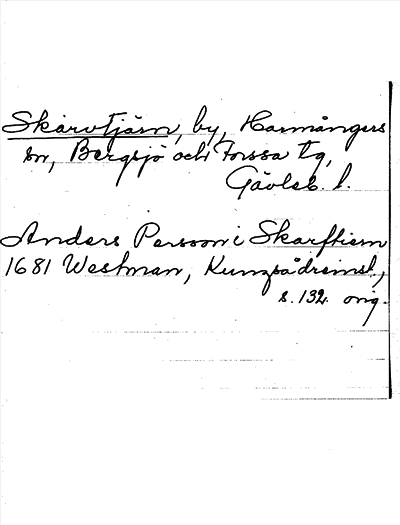 Skärvtjärn, by, Harmångers
sn, Bergsjö och Forssa tg,
Gävleb. l.
Anders Persson i Skarftiern
1681 Westman, Kungsådreinst.,
s. 132. orig.